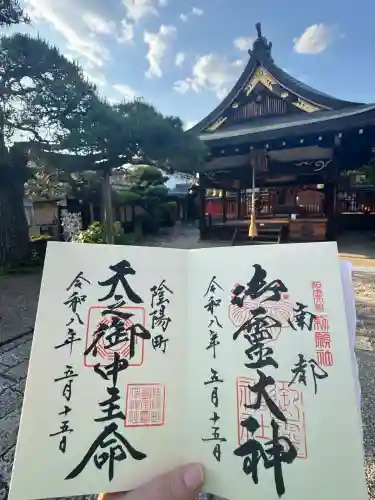 南都
御霊大神
令和八年 五月十五日
陰陽町
天之御中主命
令和八年 五月十五日